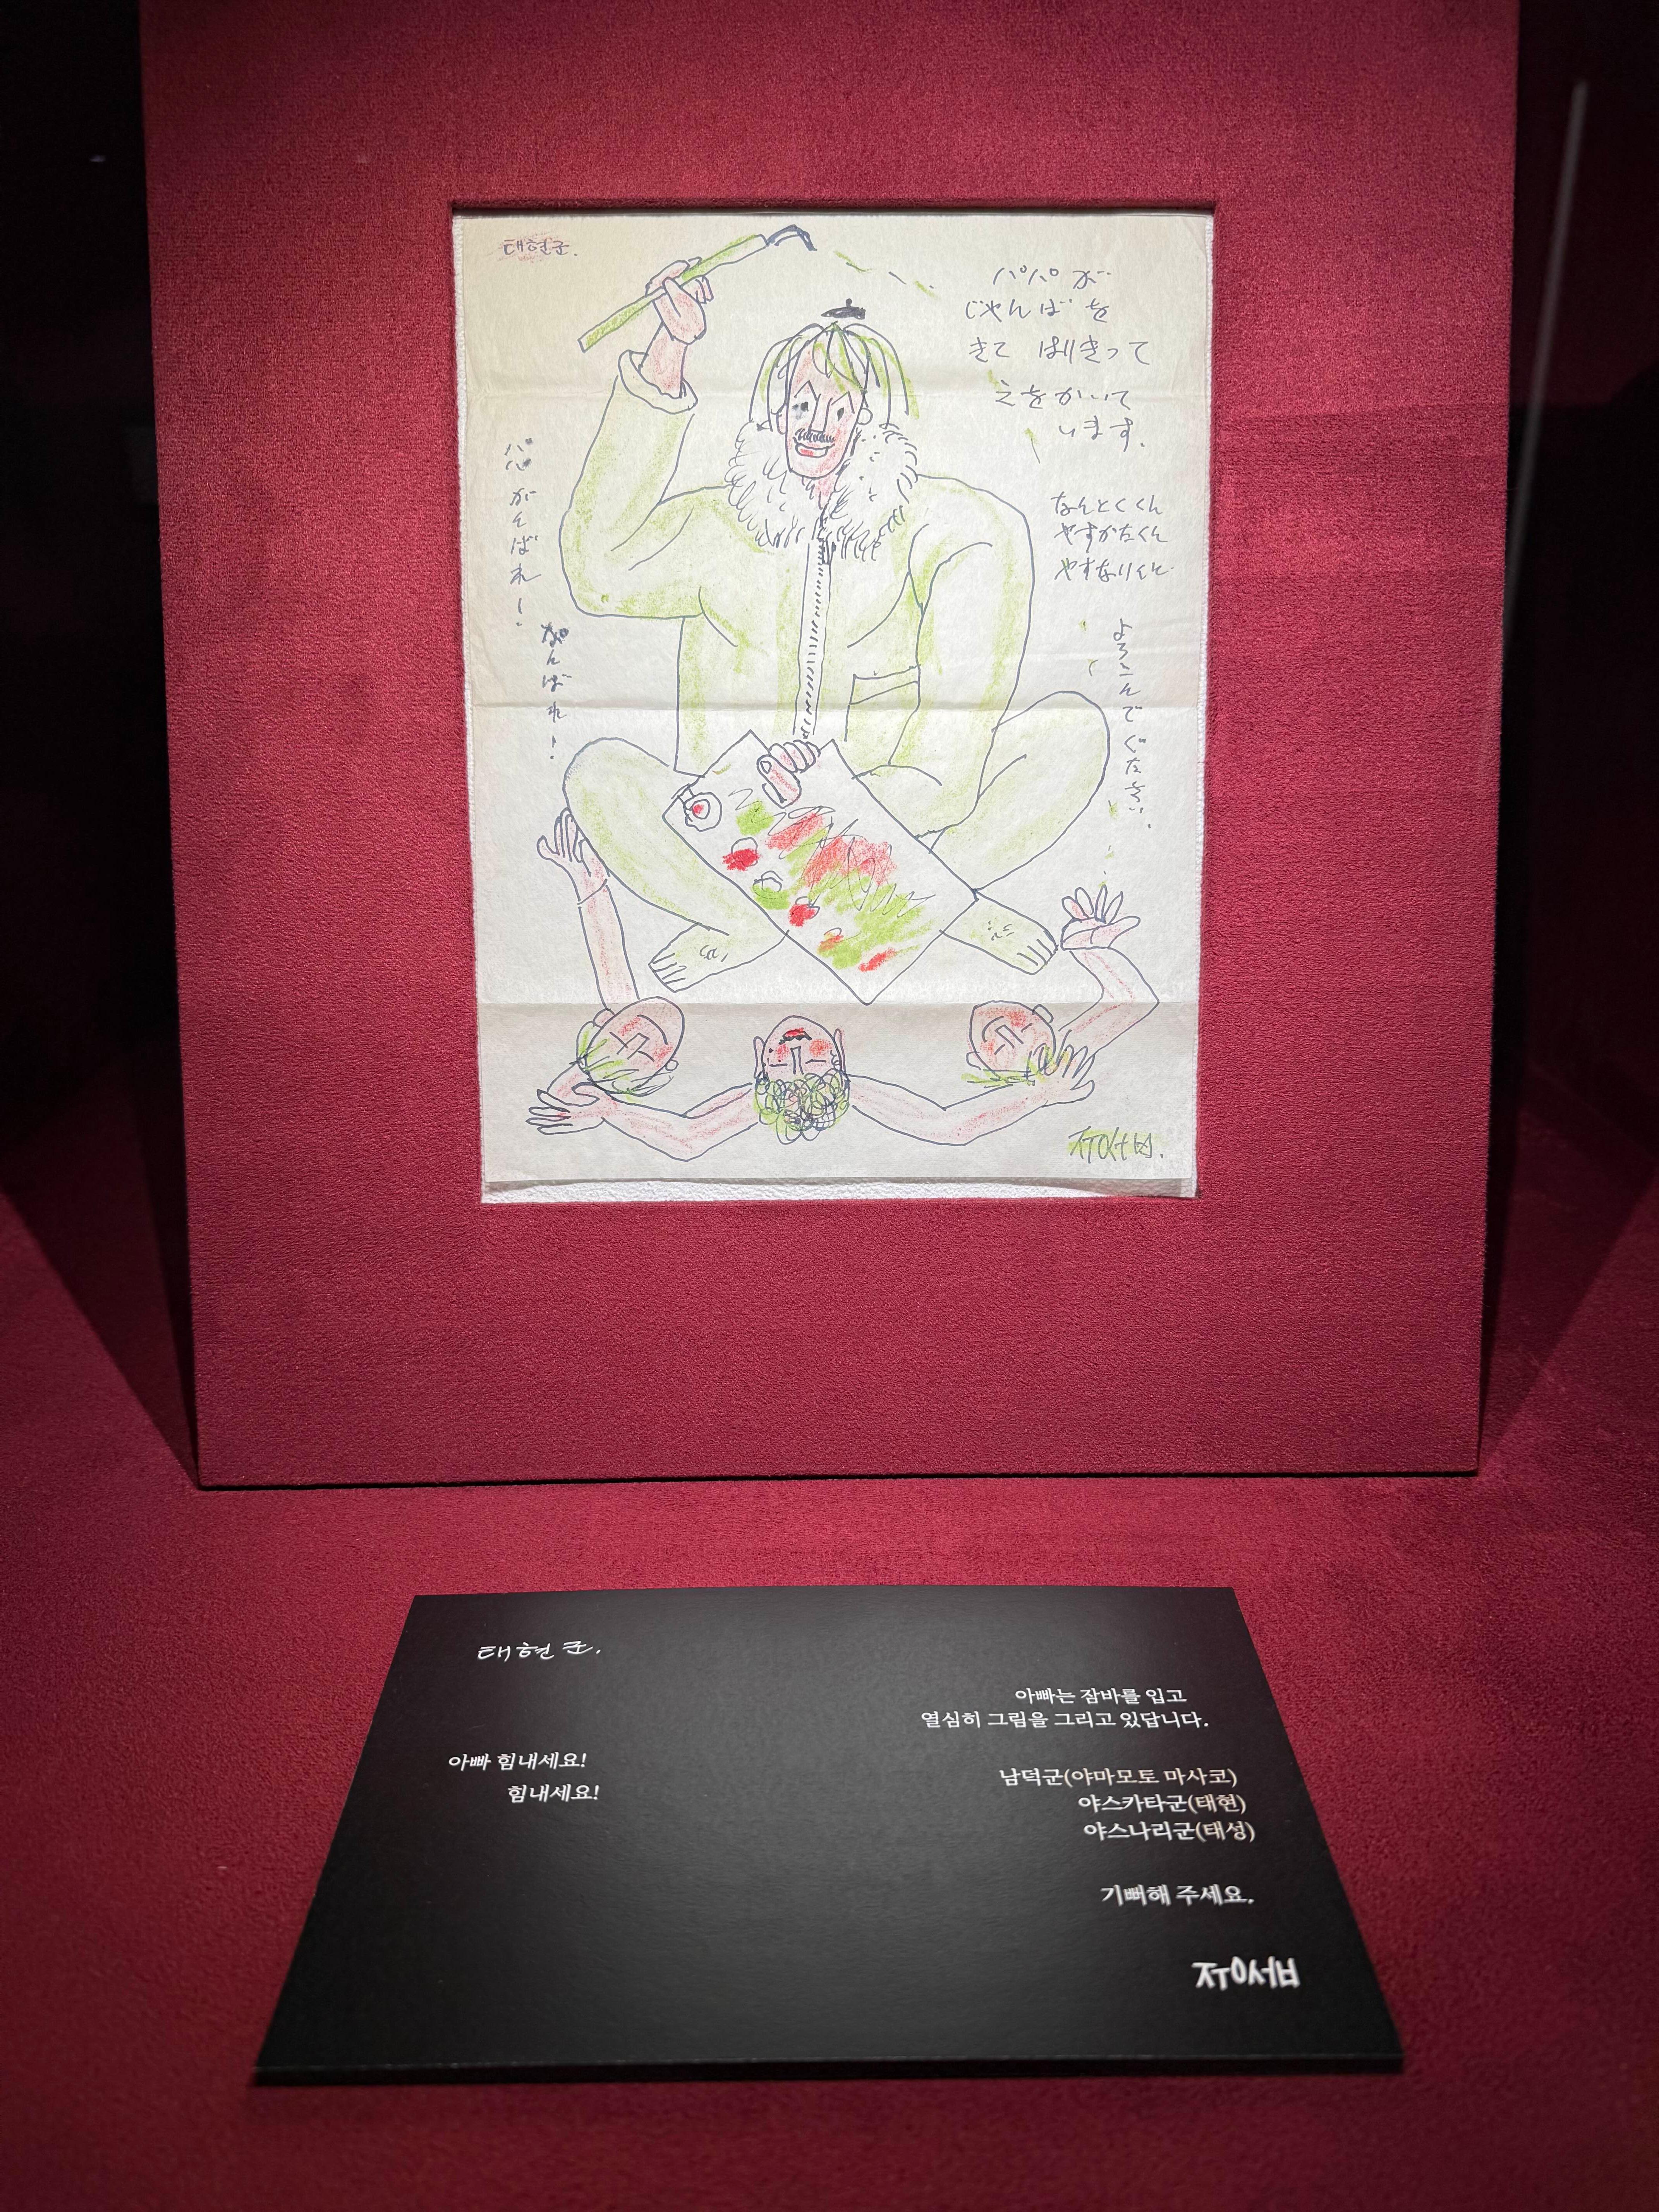 태현군.
パパが
じゃんばを
きて はりきって
えをかいて
います.
なんとくくん
やすかたくん
やすなりくん
よろこんでください.
パパ がんばれ!
がんばれ!
ㅈㅜㅇㅅㅓㅂ.
태현군.
아빠는 잠바를 입고
열심히 그림을 그리고 있답니다.
아빠 힘내세요!
힘내세요!
남덕군(야마모토 마사코)
야스카타군(태현)
야스나리군(태성)
기뻐해 주세요.
ㅈㅜㅇㅅㅓㅂ